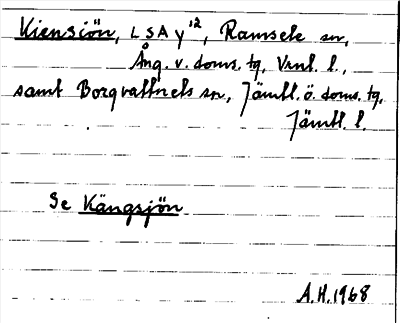 Kiensjön, LSA y¹², Ramsele sn,
Ång. v. doms. tg, Vnl. l.,
samt Borgvattnets sn, Jämtl. ö. doms. tg,
Jämtl. l.
Se Kängsjön
A.H. 1968